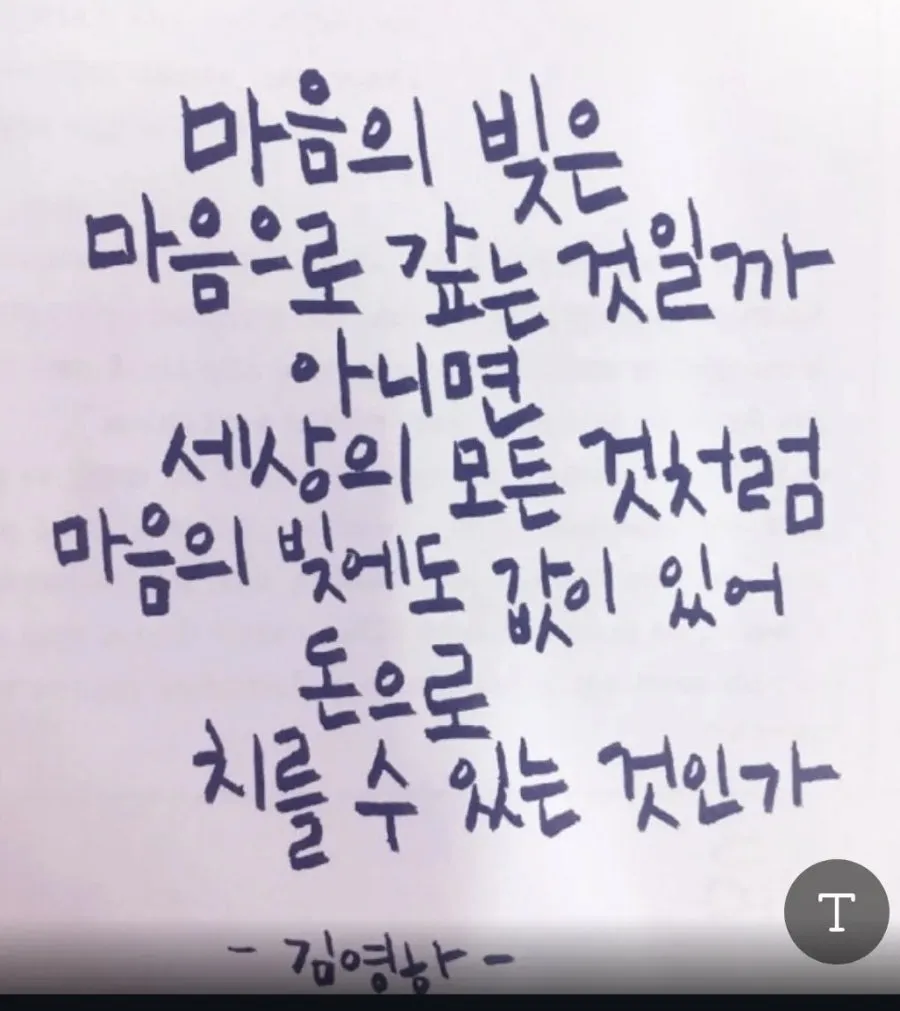 마음의 빚은
마음으로 갚는 것일까
아니면
세상의 모든 것처럼
마음의 빚에도 값이 있어
돈으로
치를 수 있는 것인가
- 김영하 -
T